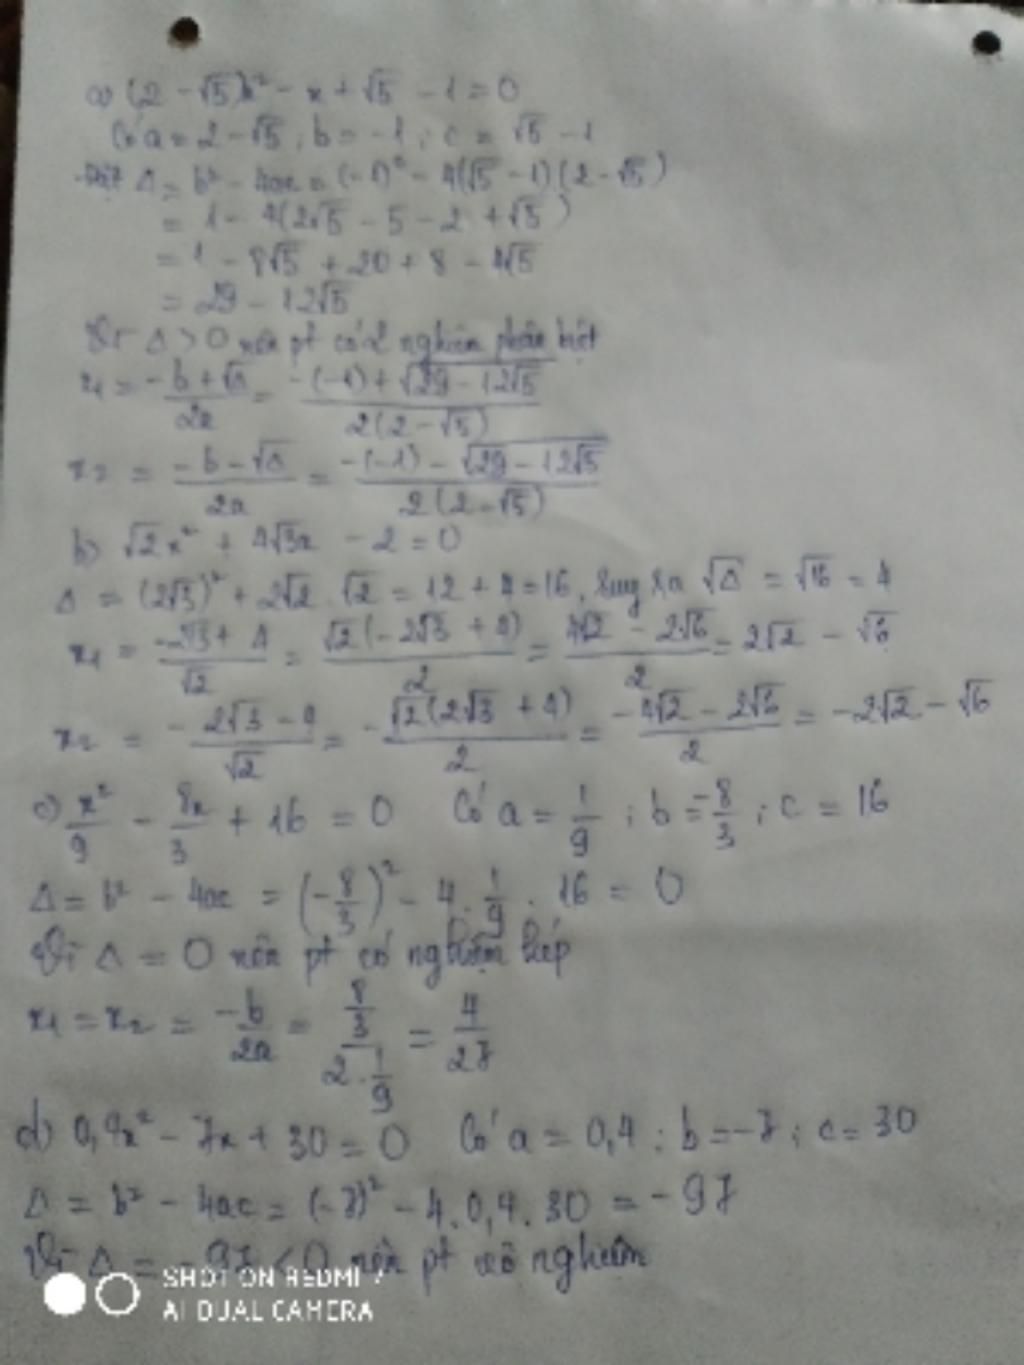 a) (2 - √5)x² - x + √5 - 1 = 0
Có a = 2 - √5 ; b = -1 ; c = √5 - 1
Δ = b² - 4ac = (-1)² - 4(√5 - 1)(2 - √5)
= 1 - 4(2√5 - 5 - 2 + √5)
= 1 - 8√5 + 20 + 8 - 4√5
= 29 - 12√5
Vì Δ > 0 nên pt có 2 nghiệm phân biệt
x1 = (-b + √Δ)/2a = (-(-1) + √(29 - 12√5))/(2(2 - √5))
x2 = (-b - √Δ)/2a = (-(-1) - √(29 - 12√5))/(2(2 - √5))
b) √2x² + 4√3x - 2 = 0
Δ = (2√3)² + 2√2 . √2 = 12 + 4 = 16, suy ra √Δ = √16 = 4
x1 = (-2√3 + 4)/√2 = √2(-2√3 + 4)/2 = (4√2 - 2√6)/2 = 2√2 - √6
x2 = (-2√3 - 4)/√2 = -√2(2√3 + 4)/2 = (-4√2 - 2√6)/2 = -2√2 - √6
c) x²/9 - 8x/3 + 16 = 0 Có a = 1/9 ; b = -8/3 ; c = 16
Δ = b² - 4ac = (-8/3)² - 4 . 1/9 . 16 = 0
Vì Δ = 0 nên pt có nghiệm kép
x1 = x2 = -b/2a = (8/3)/(2 . 1/9) = 4/27
d) 0,4x² - 7x + 30 = 0 Có a = 0,4 ; b = -7 ; c = 30
Δ = b² - 4ac = (-7)² - 4.0,4.30 = -97
Vì Δ = -97 < 0 nên pt vô nghiệm
SHOT ON REDMI 7
AI DUAL CAMERA